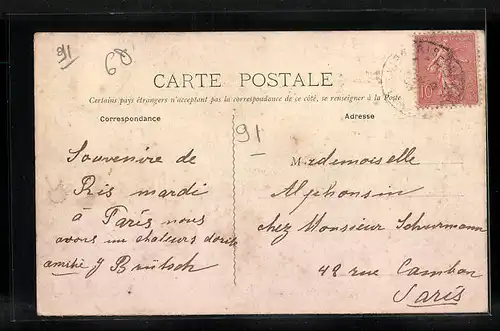 91
60
CARTE POSTALE
Certains pays étrangers n'acceptant pas la correspondance de ce côté, se renseigner à la Poste
Correspondance
Adresse
91
Souvenire de
Ris mardi
à Paris nous
avons un chaleurs
amitié J Brütsch
Mademoiselle
Alphonsin
chez Monsieur Schurmann
42 rue Cambon
Paris
10